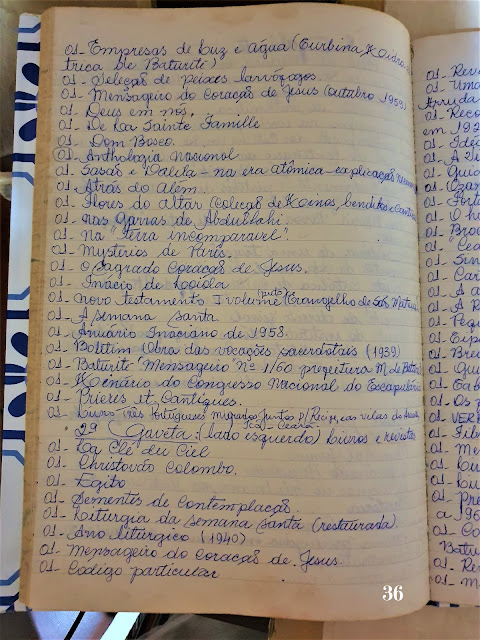 01- Empresas de Luz e água (Turbina, Hidrelé
trica de Baturité)
01- Seleção de peixes larvófagos.
01- Mensageiro do Coração de Jesus (outubro 1959)
01- Deus em nós.
01- De La Sainte Famille
01- Dom Bosco.
01- Anthologia Nacional
01- Sasão e Dalila - na era atômica - explicação
01- Atrás do Além
01- Flores do Altar (Coleção de Hinos, benditos e
01- nas Garras de Abdullahi.
01- Na "terra incomparavel".
01- Mysterios de Paris.
01- O Sagrado Coração de Jesus.
01- Inácio de Loóiola
01- novo testamento I volume Evangelho de São Mateus
01- A semana Santa
01- Anuário Inaciano de 1958.
01- Boletim Obra das vocações sacerdotais (1939)
01- Baturité "Mensageiro" Nº 1/60 prefeitura M. de
01- Hinário do Congresso Nacional do Escapulário
01- Prieres et Cantiques.
01- Livros três Portugueses migrados juntos p/ Recife, nas velas do
Icó - Ceará.
2ª Gaveta: (lado esquerdo) livros e revistas
01- La Clé du Ciel
01- Christovão Colombo.
01- Egito
01- Sementes de Contemplação.
01- Liturgia da Semana Santa (restaurada).
01- Ano liturgico (1940)
01- Mensageiro do Coração de Jesus.
01- Codigo particular
36
01- Rev
01- Uma
Arruda
01- Reco
em 192
01- Ide
01- A Vi
01- Guia
01- Ozan
01- Fort
01- O h
01- Bro
01- "Cea
01- Sin
01- Car
01- A
01- A R
01- Pequ
01- Epi
01- Bre
01- Gu
01- Gab
01- Os p
01- VER
01- Fil
01- Me
01- Lu
01- Lu
01- Pre
a 196
01- Co
Batu
01- Re
01- M